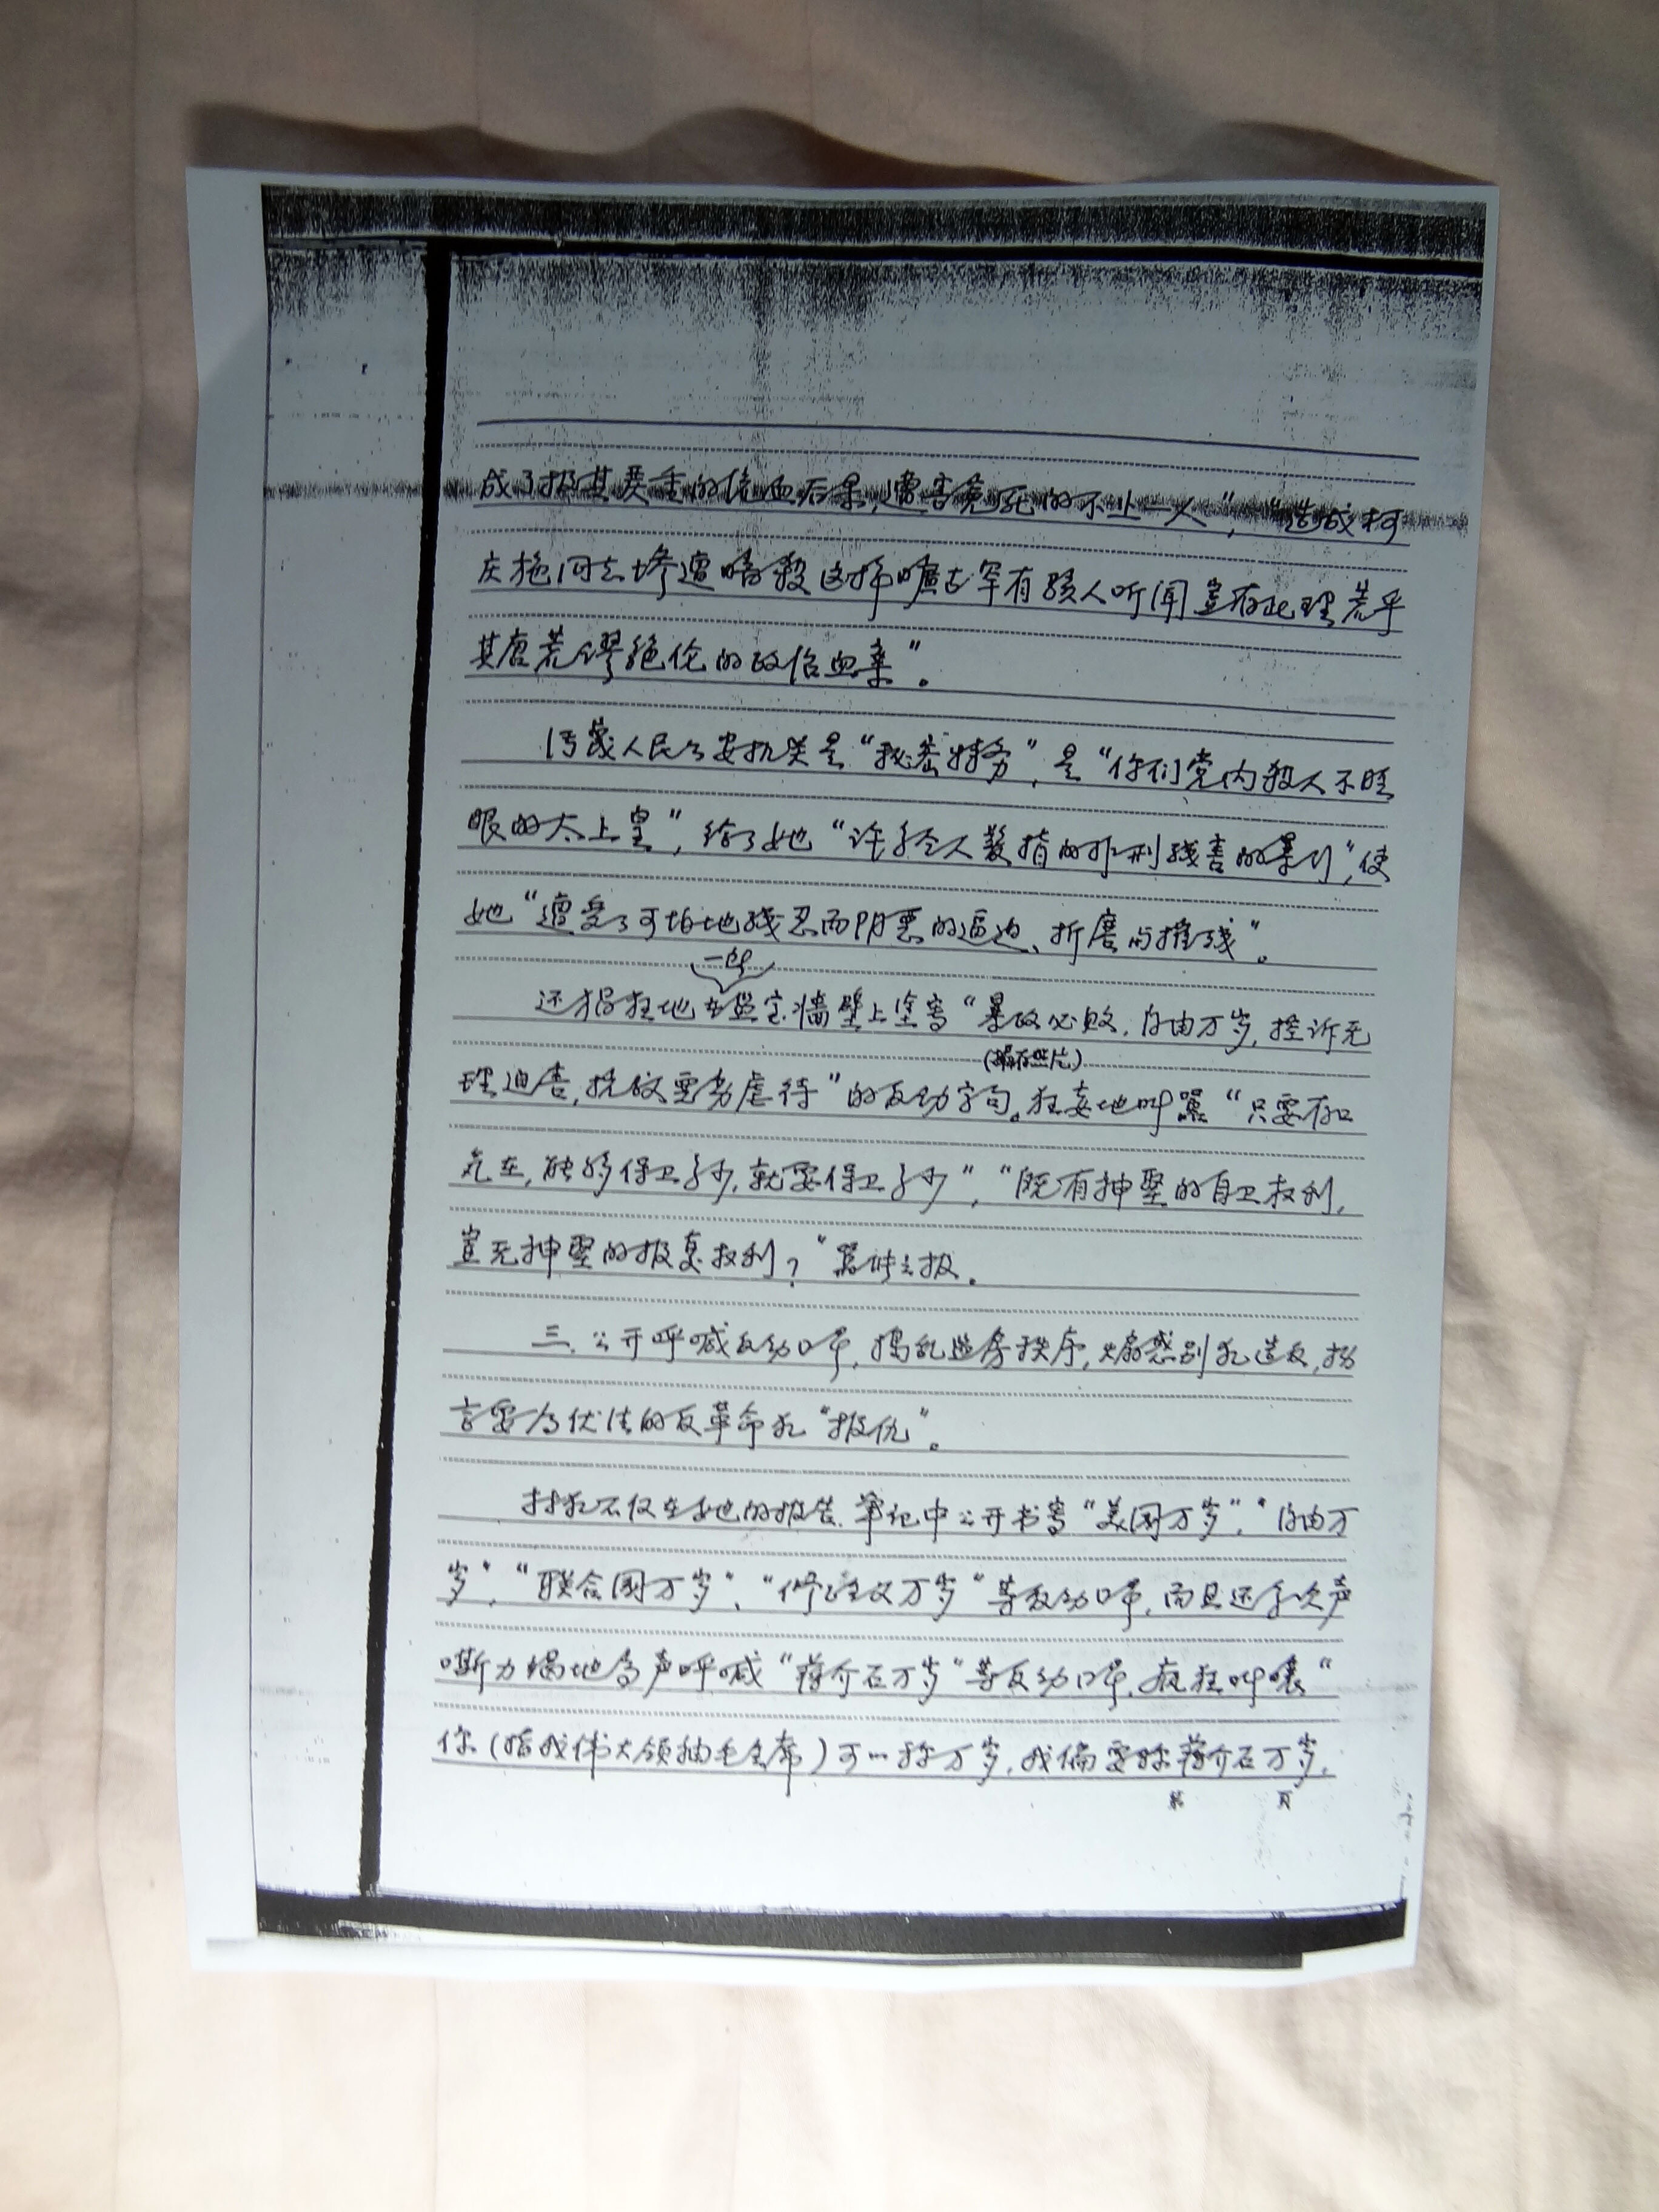 成了极其严重的流血后果，遭害冤死的不止一人”，“造成柯
庆施同志惨遭暗杀这样旷古罕有骇人听闻岂有此理荒乎
其唐荒谬绝伦的政治血案”。
污蔑人民公安机关是“秘密特务”，是“你们党内杀人不眨
眼的太上皇”，给了她“许多令人发指的非刑残害的暴行”，使
她“遭受了可怕地残忍而阴恶的逼迫、折磨与摧残”。
一时
还猖狂地在监室墙壁上塗写“暴政必败，自由万岁，控诉无
(摄有照片)
理迫害，抗议要劳虐待”的反动字句。狂妄地叫嚣“只要有口
气在，能够保卫多少，就要保卫多少”，“既有神聖的自卫权利，
岂无神聖的报复权利？”
三、公开呼喊反动口号，捣乱监房秩序，煽惑别犯造反，扬
言要为伏法的反革命犯“报仇”。
林犯不仅在她的报告、笔记中公开书写“美国万岁”、“自由万
岁”、“联合国万岁”、“修正主义万岁”等反动口号，而且还多次声
嘶力竭地高声呼喊“蒋介石万岁”等反动口号，疯狂叫嚷“
你（指我伟大领袖毛主席）可以称万岁，我偏要称蒋介石万岁，
第 页